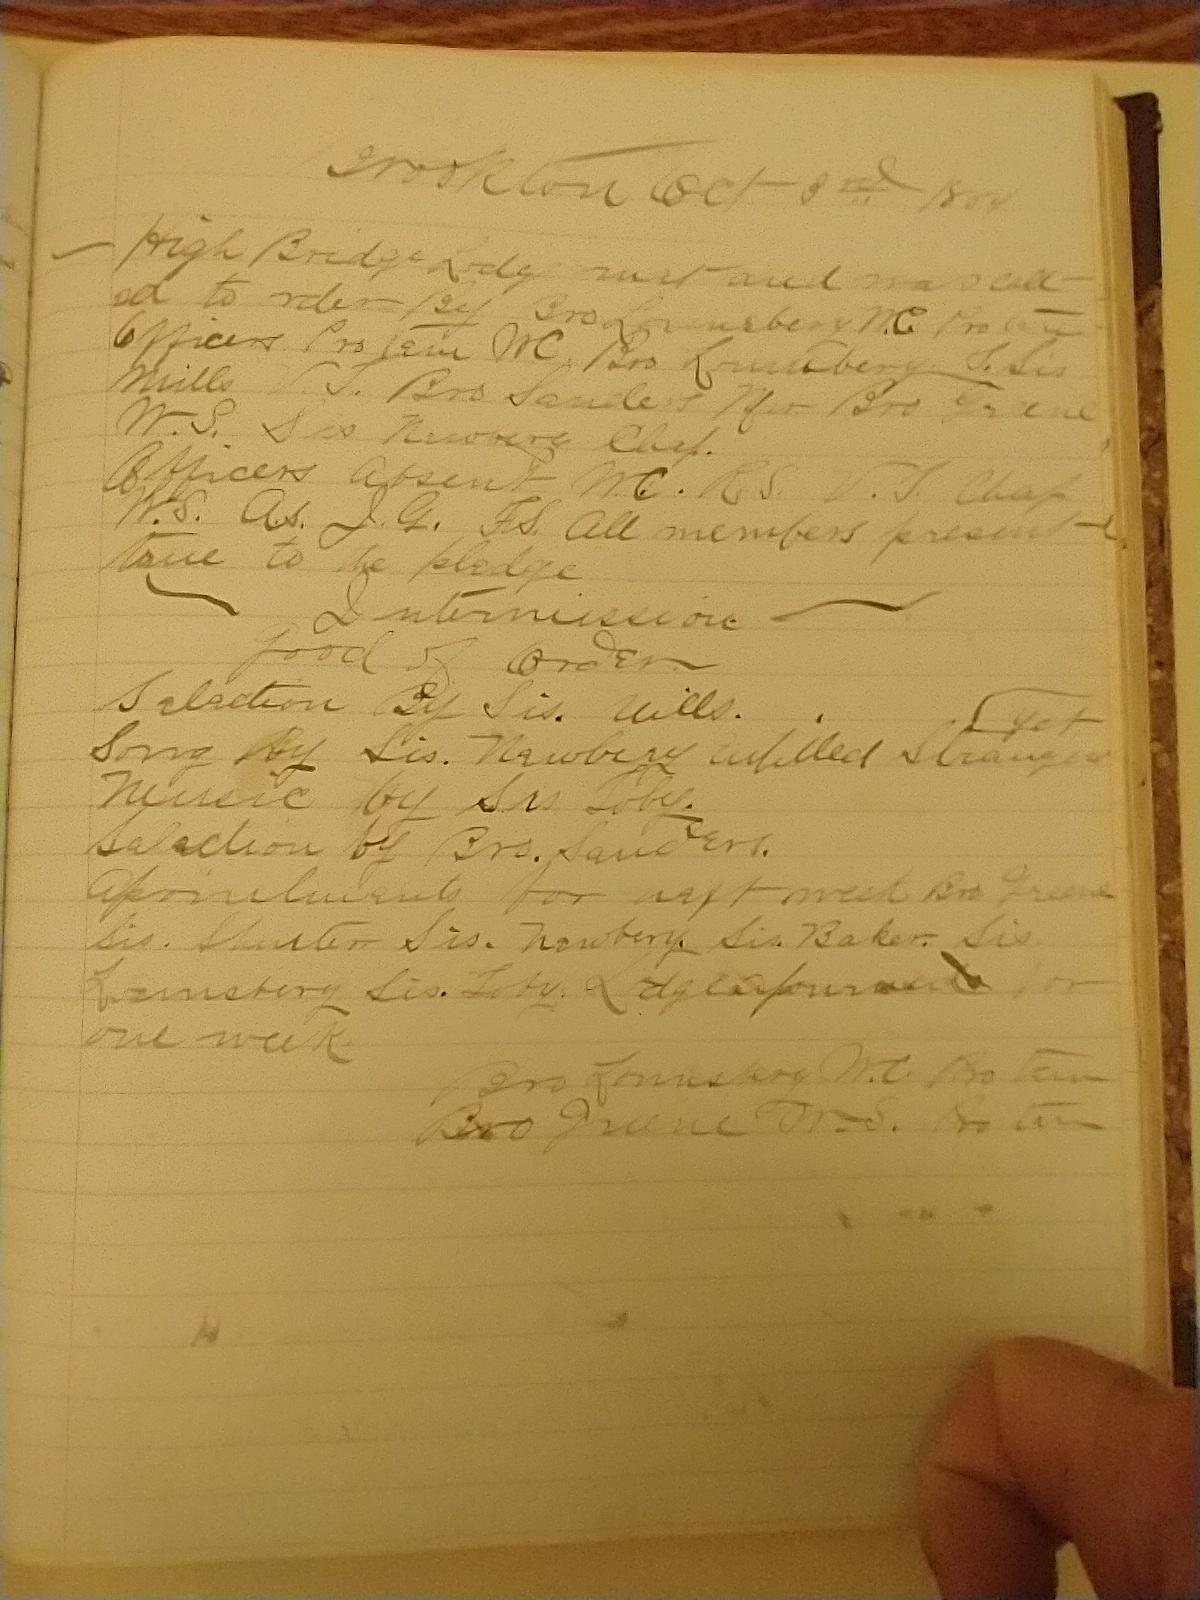 Brookton Oct 3rd
High Bridge Lodg met and was call-
ed to rder By Bro Lounsbery W.C. Protem
Officers Protem W.C. Bro Lounsbery. Sis
Mills V.T. Bro Sanders Bro Greene
W.S. Sis Newbery Chap.
Officers absent W.C. R.S. V.T. Chap
W.S. As. I.G. F.S. All members present
true to the pledge
Intermission
Good of Order
Selection By Sis. Mills.
yet
Song By Sis. Newbery Stranger
Music by Sis Toby.
Selection by Bro. Sanders.
for next week Bro Greene
Sis. Shuster Sis. Newbery. Sis. Baker. Sis.
Lounsbery Sis. Toby. for
one week
Bro Lounsbery W.C. Pro tem
Bro Greene W.S. Pro tem